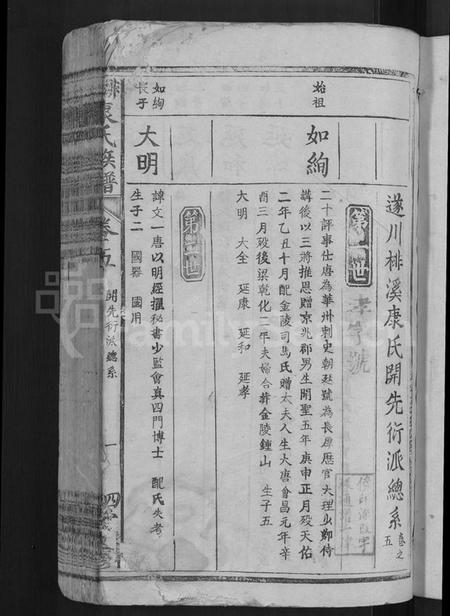 遂川棑溪康氏開先衍派總系 卷之五
第一世
孝字號
始祖
如絢
二十評事仕唐為華州刺史朝廷號為長歷官大理少卿侍
講後以三將推恩贈京兆郡男生開聖五年庚申正月歿天佑
二年乙丑十月配金陵司馬氏贈太夫人生大唐會昌元年辛
酉三月歿後梁乾化二年夫婦合葬金陵鍾山 生子五
大明 大全 延康 延和 延孝
第二世
如絢長子
大明
諱文一唐以明經擢秘書少監會真四門博士 配氏失考
生子二 國器 國用
康氏族譜
卷之五
開先衍派總系
一